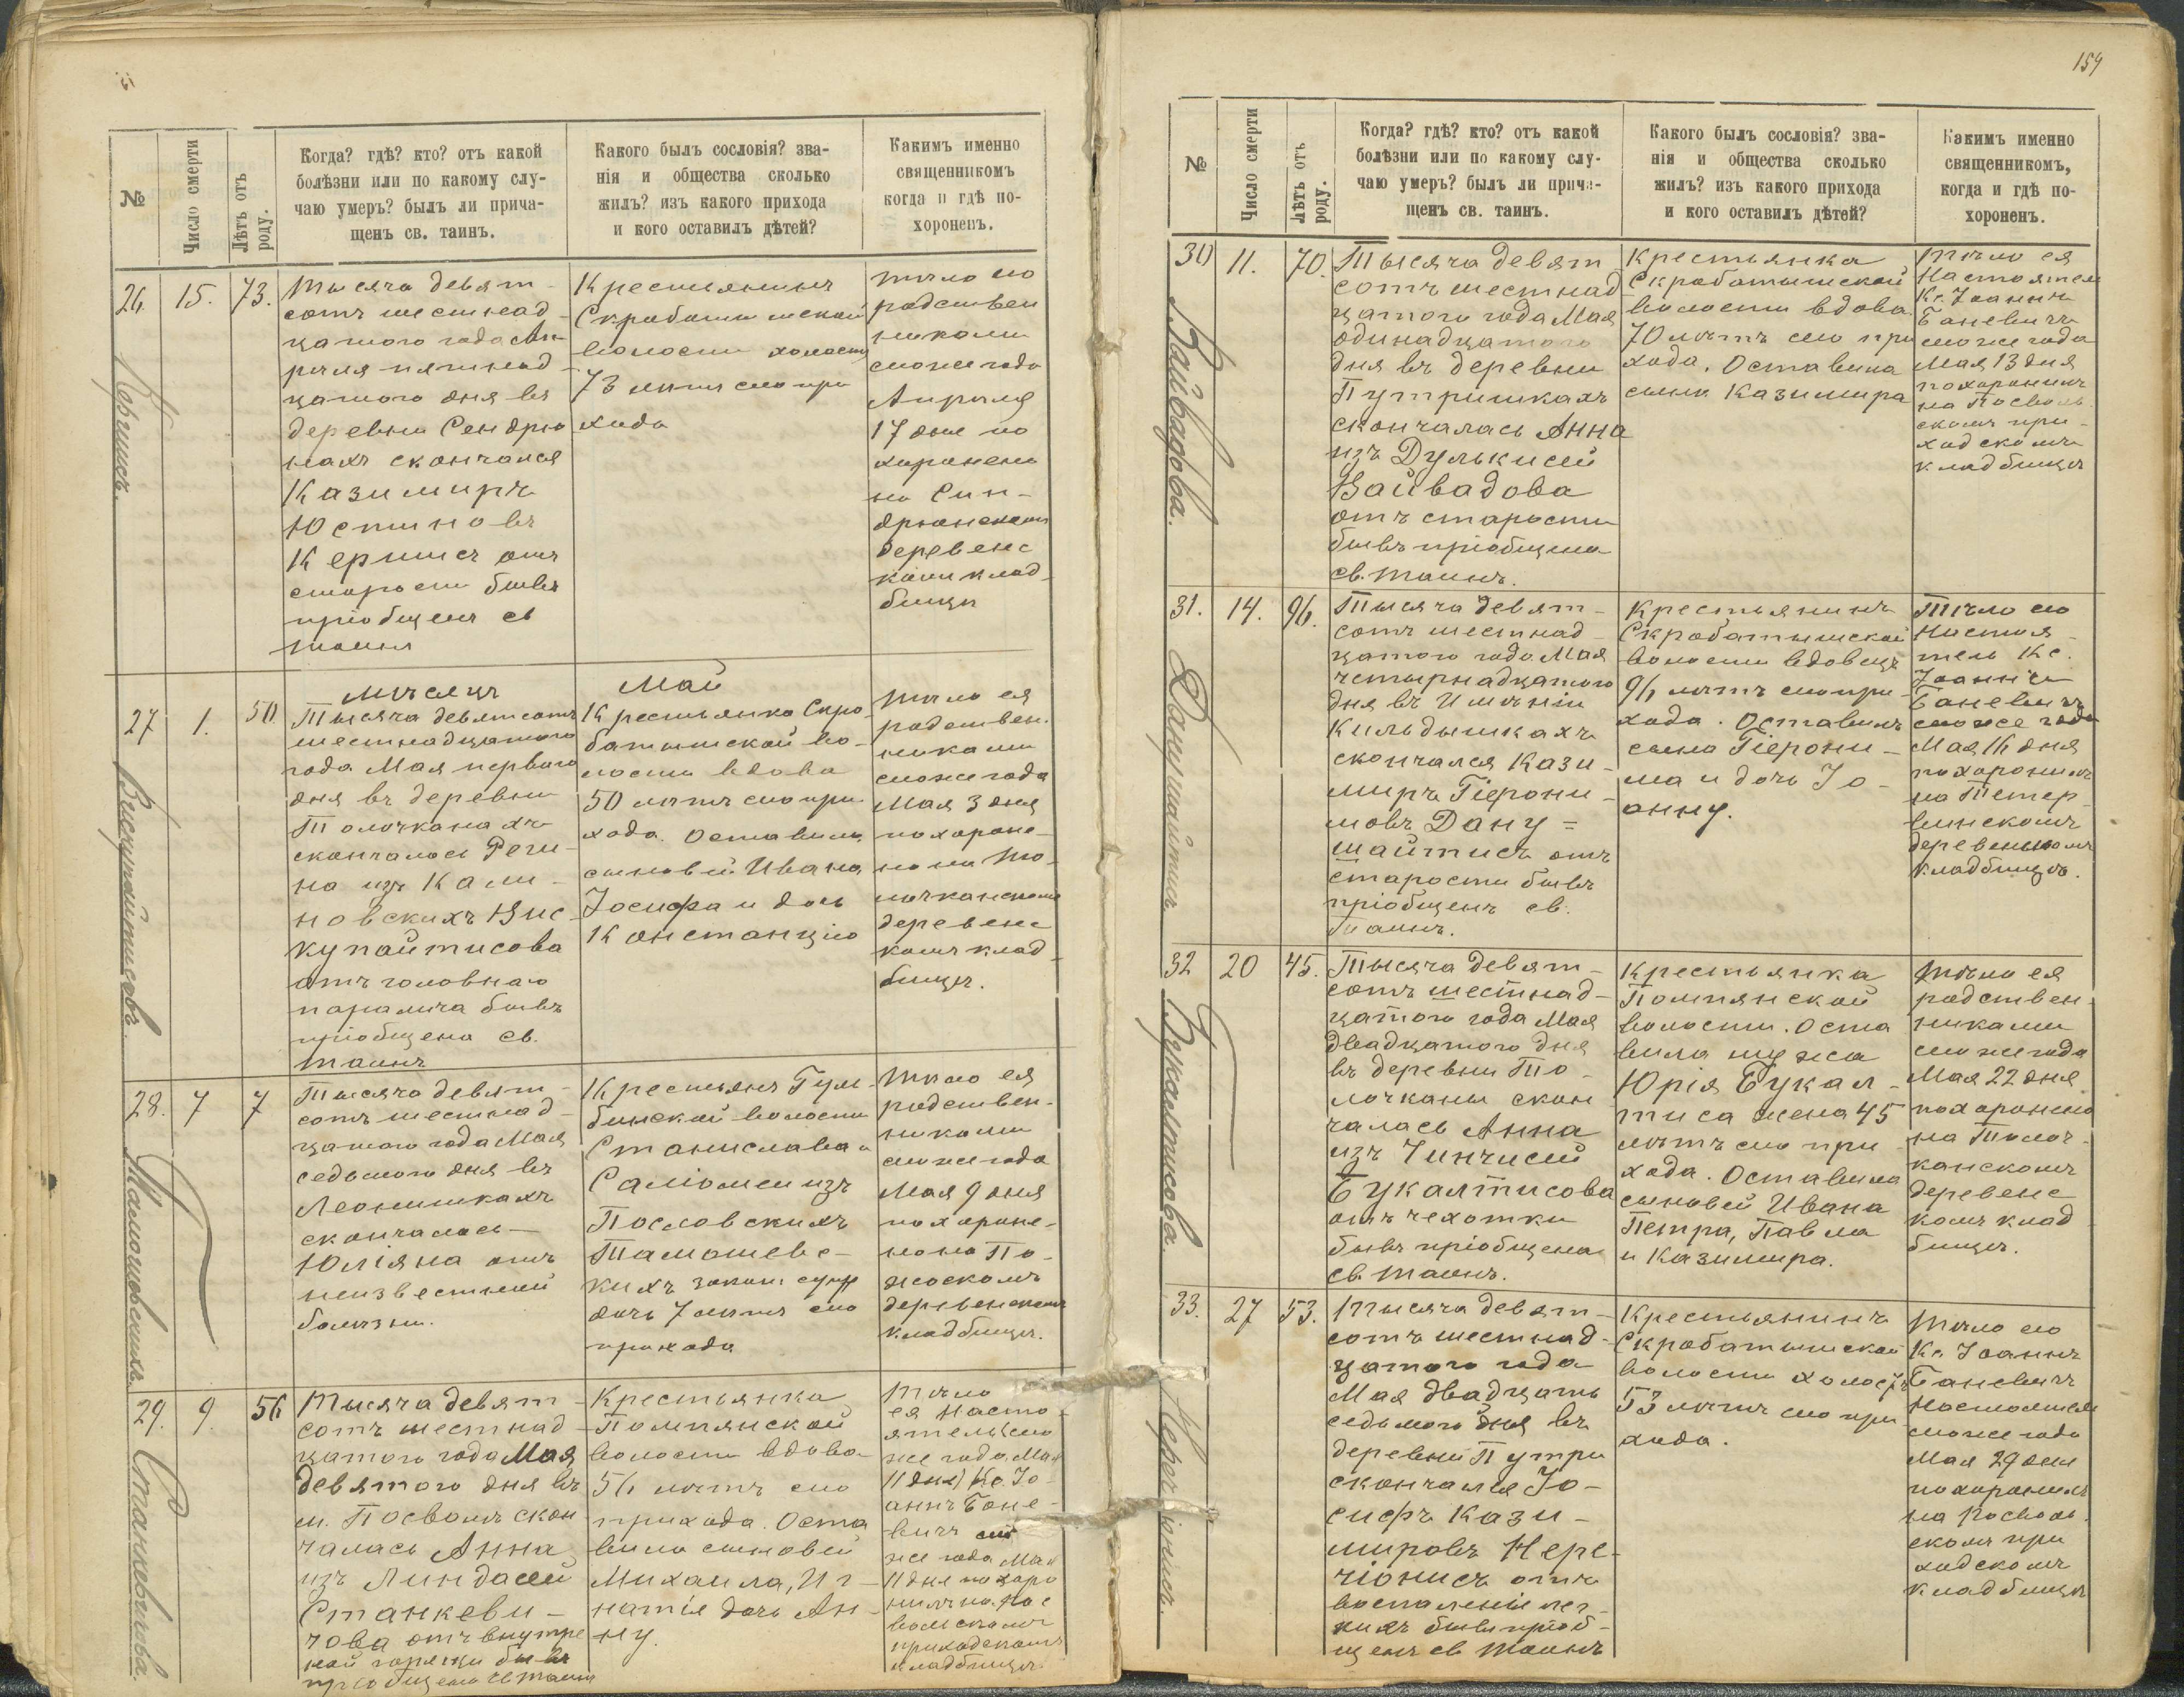 №
Число смерти
Лѣтъ отъ
роду.
Когда? гдѣ? кто? отъ какой
болѣзни или по какому слу-
чаю умеръ? былъ ли прича-
щенъ св. таинъ.
Какого былъ сословія? зва-
нія и общества сколько
жилъ? изъ какого прихода
и кого оставилъ дѣтей?
Какимъ именно
священникомъ
когда и гдѣ по-
хороненъ.
26.
15.
73.
Тысяча девят-
сотъ шестнад-
цатого года Ап-
рѣля пятнад-
цатого дня въ
деревни Сендрю
нахъ скончался
Казимиръ
Юстиновъ
Кершисъ отъ
старости бывъ
пріобщенъ св
таинъ
Крестьянинъ
Скробатишской
волости холостъ
73 лѣтъ сего при
хода
Тѣло его
родствен
никами
сего же года
Апрѣля
17 дня по
хоронено
на Син-
дрюнскомъ
деревенс
комъ клад-
бищѣ
Кершисъ.
мѣсяцъ
Май
27
1.
50.
Тысяча девятсотъ
шестнадцатого
года Мая первого
дня въ деревни
Толочканахъ
скончалась Реги-
на изъ Кали-
новскихъ Вис-
купайтисова
отъ головнаго
паралича бывъ
пріобщена св.
таинъ
Крестьянка Скро-
батышской во-
лости вдова
50 лѣтъ сего при
хода. Оставила
сыновей Ивана,
Іосифа и дочь
Констанцію
Тѣло ея
родствен.
никами
сего же года
Мая 3 дня
похороне-
но на То-
лочканскомъ
деревенс
комъ клад-
бищѣ.
Вискупайтисовъ.
28.
7
7
Тысяча девят-
сотъ шестнад-
цатого года Мая
седьмого дня въ
Леонишкахъ
скончалась
Юліяна отъ
неизвестной
болѣзни.
Крестьянъ Гум-
бинской волости
Станислава и
Саломеи изъ
Пословскихъ
Тамошевс-
кихъ закон: супр
дочь 7 лѣтъ сего
прихода
Тѣло ея
родствен-
никами
сего же года
Мая 9 дня
похороне-
но на По-
жоскомъ
деревенскомъ
кладбищѣ.
29.
9.
56
Тысяча девят-
сотъ шестнад
цатого года Мая
девятого дня въ
м. Посволѣ скон
чалась Анна
изъ Линдасей
Станкеви-
чова отъ внутре
ней горячи бывъ
пріобщена св таинъ
Крестьянка
Помпянской
волости вдова
56 лѣтъ сего
прихода. Оста
вила сыновей
Михаила, Иг-
натія дочь Ан-
ну.
Тѣло
ея Насто-
ятель сего
же года Мая
11 дня) Кс. Іо-
аннъ Бане-
вичъ сего
же года Мая
11 дня похоро
нилъ на Пос
вольскомъ
приходскомъ
кладбищѣ
Станкевичова.
159
№
Число смерти
Лѣтъ отъ
роду.
Когда? гдѣ? кто? отъ какой
болѣзни или по какому слу-
чаю умеръ? былъ ли прича-
щенъ св. таинъ.
Какого былъ сословія? зва-
нія и общества сколько
жилъ? изъ какого прихода
и кого оставилъ дѣтей?
Какимъ именно
священникомъ,
когда и гдѣ по-
хороненъ.
30
11.
70.
Тысяча девят
сотъ шестнад
цатого года Мая
одинадцатого
дня въ деревни
Путришкахъ
скончалась Анна
изъ Дулькисей
Вайвадова
отъ старости
бывъ пріобщена
св. таинъ.
Крестьянка
Скробатышской
волости вдова.
70 лѣтъ сего при
хода. Оставила
сына Казимира
Тѣло ея
Настоятель
Кс. Іоаннъ
Баневичъ
сего же года
Мая 13 дня
похоронилъ
на Посволь
скомъ при-
ходскомъ
кладбищѣ
Вайвадова.
31.
14.
96.
Тысяча девят-
сотъ шестнад-
цатого года Мая
четырнадцатого
дня въ Имѣніи
Кильдышкахъ
скончался Кази-
миръ Гіерони-
мовъ Дану=
шайтисъ отъ
старости бывъ
пріобщенъ св.
Таинъ.
Крестьянинъ
Скробатышской
волости вдовецъ
96 лѣтъ сего при-
хода. Оставилъ
сына Гіерони-
ма и дочь Іо-
анну.
Тѣло его
Настоя-
тель Кс.
Іоаннъ
Баневичъ
сего же года
Мая 16 дня
похоронилъ
на Тетер-
винскомъ
деревенскомъ
кладбищѣ.
Данушайтисъ.
32
20
45.
Тысяча девят-
сотъ шестнад-
цатого года Мая
двадцатого дня
въ деревни То-
лочканы скон
чалась Анна
изъ Чинчисей
Букалтисова
отъ чехотки
бывъ пріобщена
св. таинъ.
Крестьянка
Помпянской
волости. Оста
вила мужа
Юрія Букал-
тиса жена 45
лѣтъ сего при-
хода. Оставила
сыновей Ивана
Петра, Павла
и Казимира.
Тѣло ея
родствен-
никами
сего же года
Мая 22 дня
похоронено
на Толоч-
канскомъ
деревенс
комъ клад
бищѣ.
Букалтисова
33.
27
53.
Тысяча девят-
сотъ шестнад-
цатого года
Мая двадцать
седьмого дня въ
деревни Путри
скончался Іо-
сифъ Кази-
мировъ Нере-
чіонисъ отъ
воспаленіе лег-
кихъ бывъ пріоб-
щенъ св Таинъ
Крестьянинъ
Скробатышской
волости холостъ
53 лѣтъ сего при
хода.
Тѣло его
Кс. Іоаннъ
Баневичъ
Настоятель
сего же года
Мая 29 дня
похоронилъ
на Посволь.
скомъ при
ходскомъ
кладбищѣ